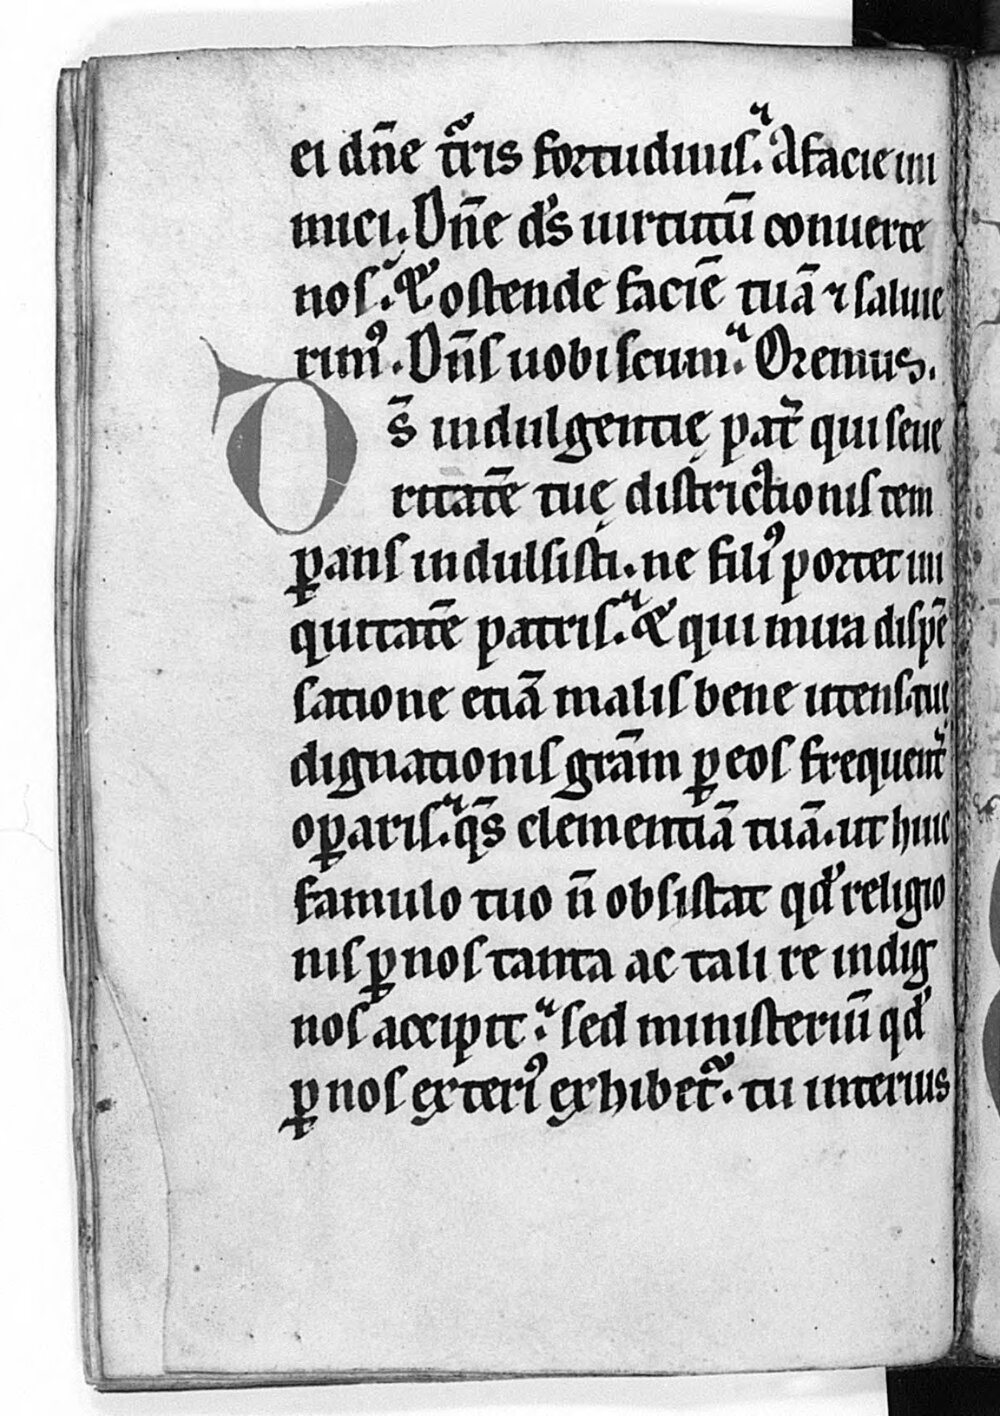 ei dn̄e tr̄ris fortudiniſ. A facie ini
mici. Dn̄e ds̄ uirtutū conuerte
noſ. Et oſtende faciē tuā ⁊ ſalui e
rimꝰ. Dn̄ſ uobiſcum. Oremus.
Ds̄ indulgentię pat̄ qui ſeue
ritatē tuę diſtrictioniſ tem
ꝑanſ indulſiſti. ne filiꝰ portet ini
quitatē patriſ. Et qui mira diſpē
ſatione etiā maliſ bene utenſ. tuę
dignationiſ grām ꝑ eoſ frequent̄
oꝑariſ. qs̄ clementiā tuā. ut huic
famulo tuo n̄ obſiſtat qd̓ religio
niſ ꝑ noſ tanta ac tali re indig
noſ accipit. ſed miniſteriū qd̓
ꝑ noſ exteriꝰ exhibet᷑. tu interius